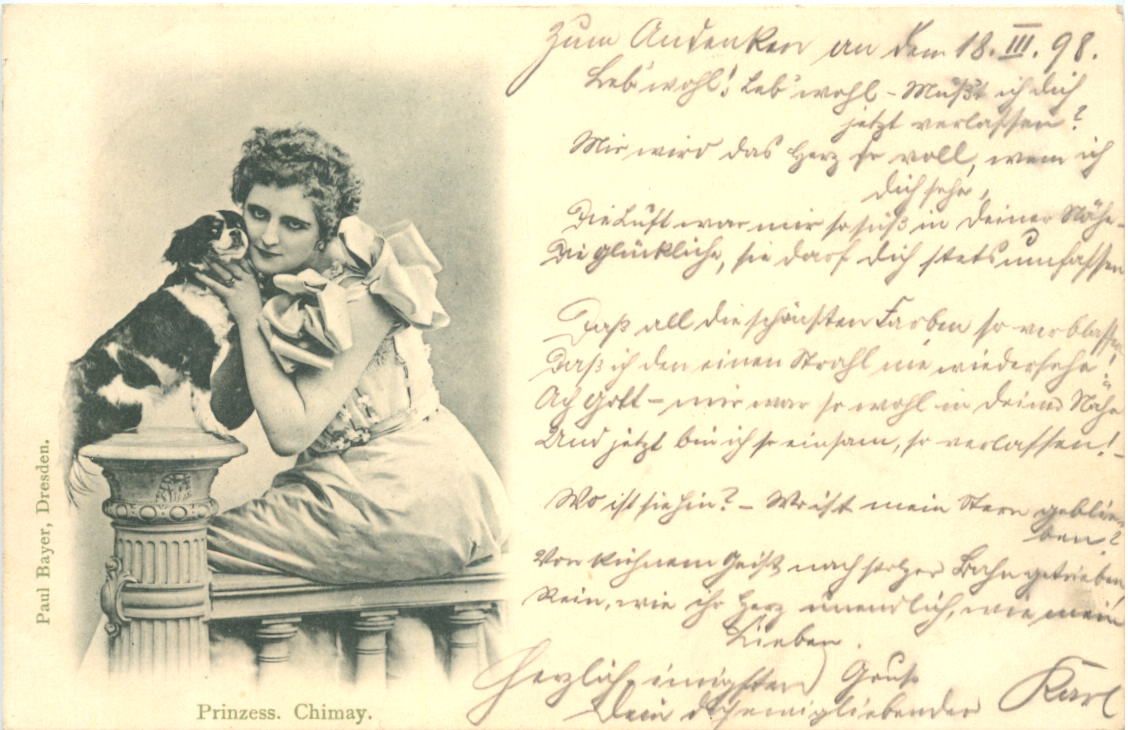 Zum Andenken an dem 18. III. 98.
Leb' wohl! Leb' wohl – Mußt ich dich
jetzt verlassen?
Mir wird das Herz so voll, wenn ich
dich sehe,
Die Luft war mir so süß in deiner Nähe –
Die glückliche, sie darf dich stets umfassen
Daß all die schönsten Farben so verblassen
Daß ich den einen Strahl nie wiedersehe!
Ach Gott – mir war so wohl in deiner Nähe
Und jetzt bin ich so einsam, so verlassen! –
Wo ist sie hin? – Wo ist mein Stern geblie-
ben?
Von kühnem Geist nach stolzer Bahn getrieben,
Rein, wie ihr Herz unendlich, wie mein
Lieben.
Herzlich innigsten Gruß
Dein dich ewigliebender Karl
Paul Bayer, Dresden.
Prinzess. Chimay.